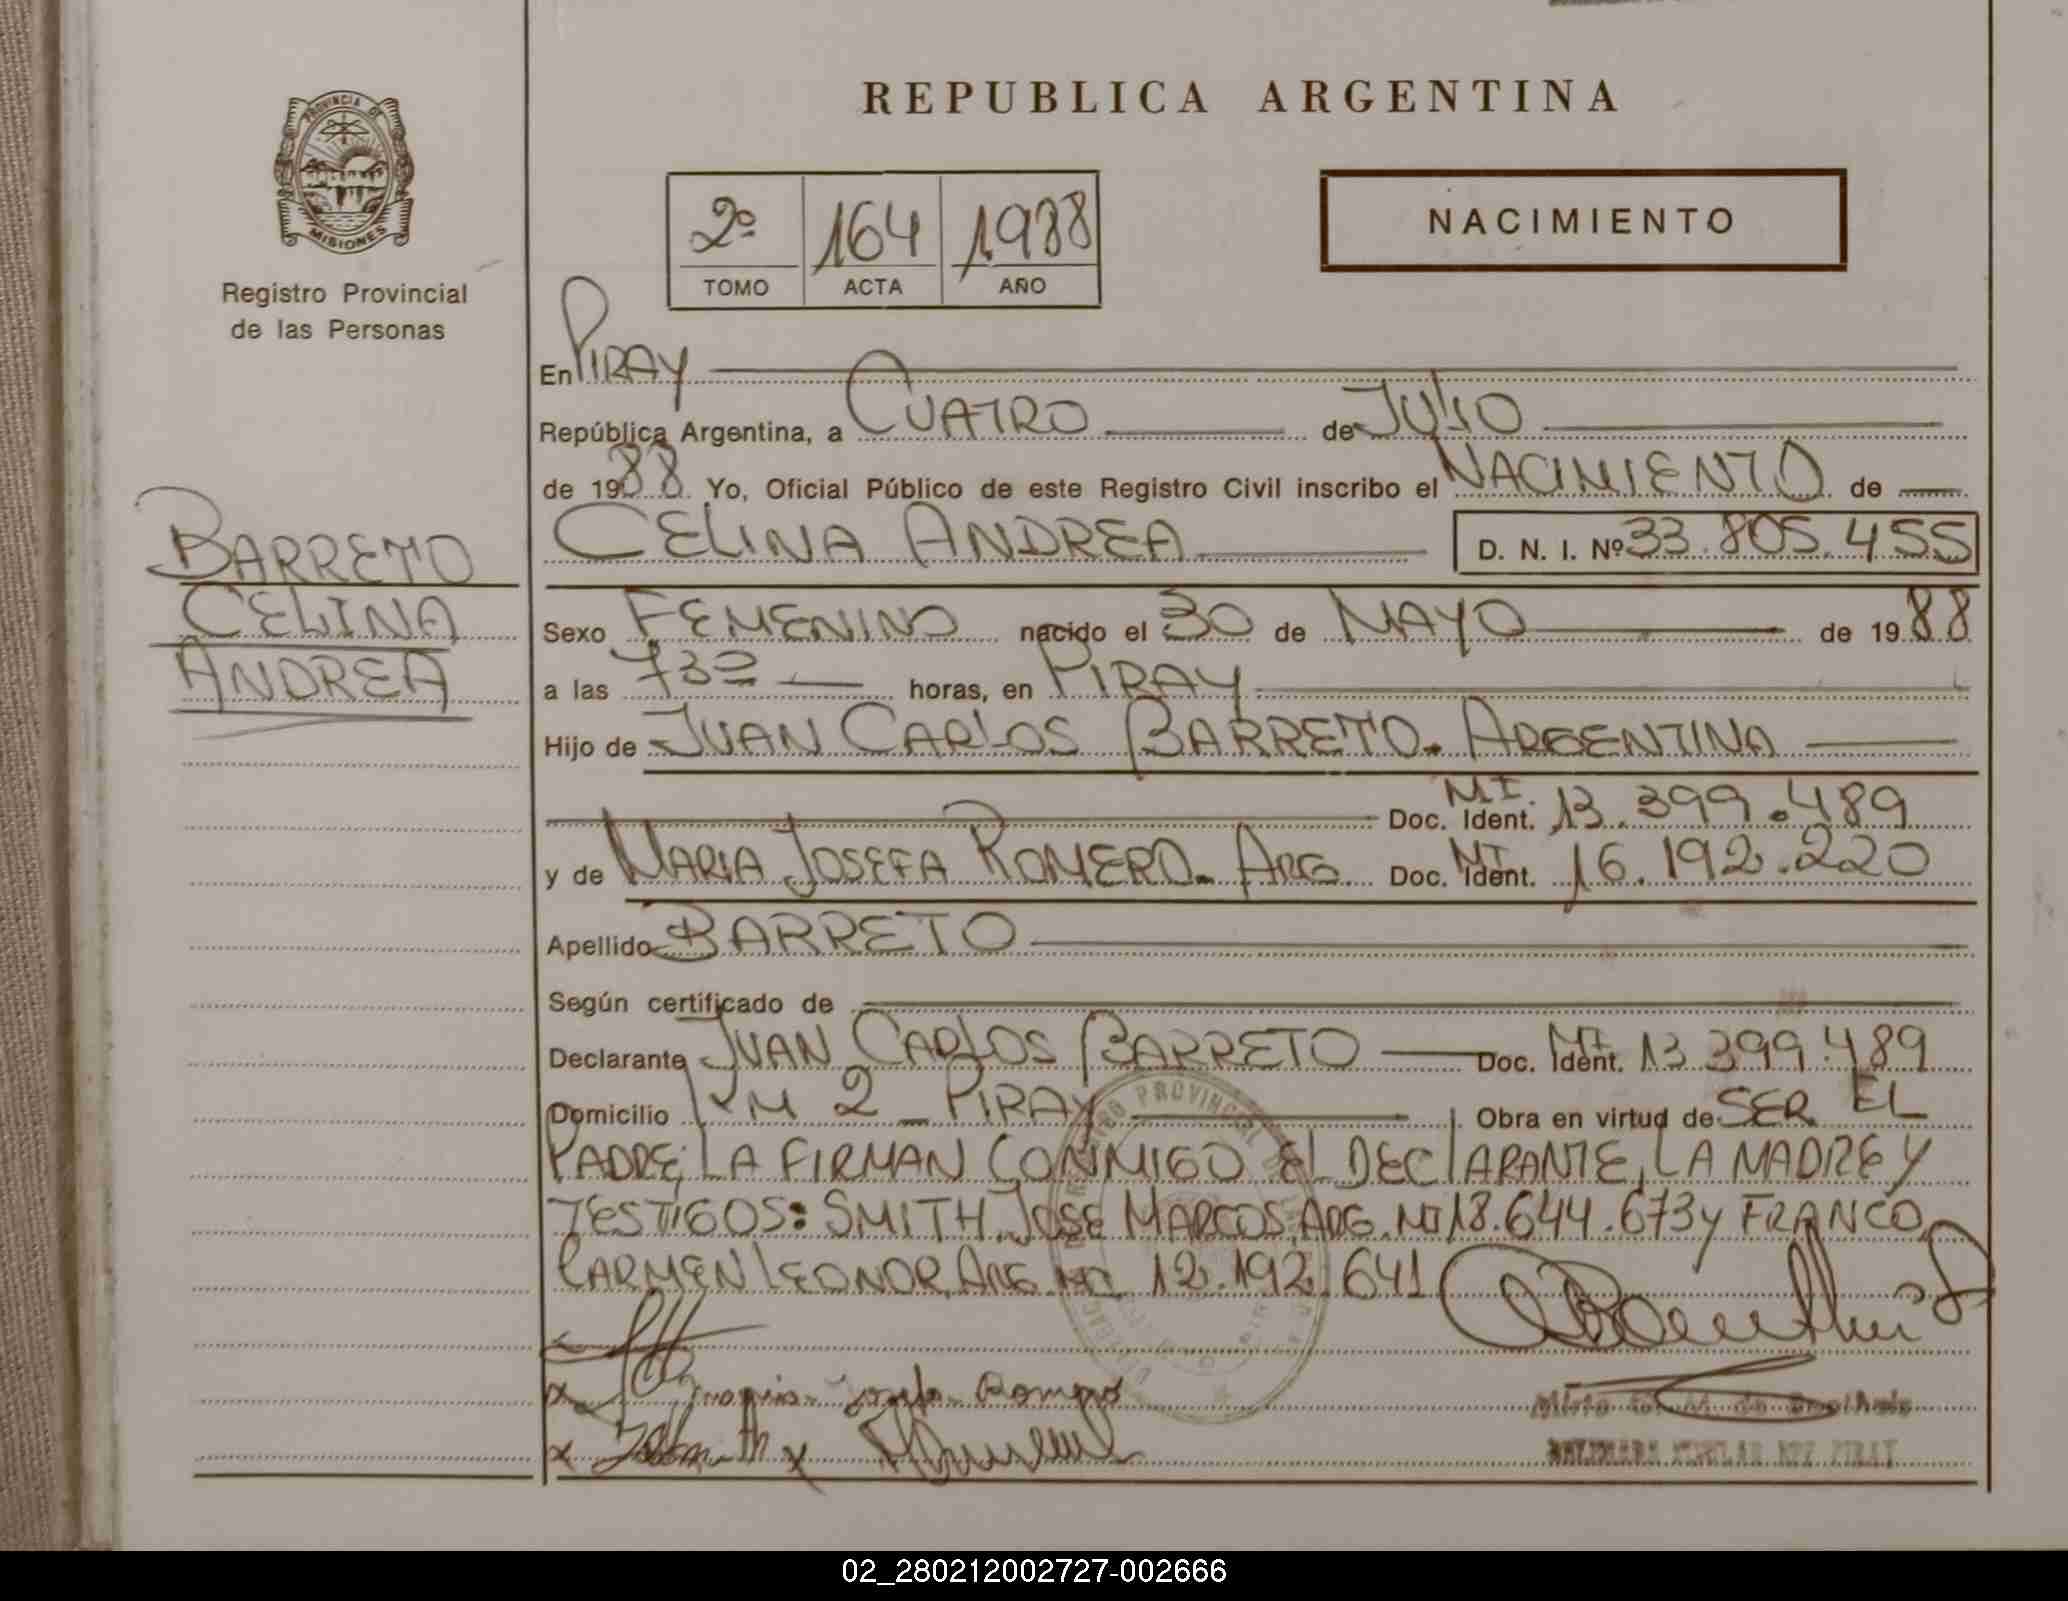 PROVINCIA DE
MISIONES
Registro Provincial
de las Personas
BARRETO
CELINA
ANDREA
REPUBLICA ARGENTINA
2º 164 1988
TOMO ACTA AÑO
NACIMIENTO
En PIRAY
República Argentina, a CUATRO de JULIO
de 1988 Yo, Oficial Público de este Registro Civil inscribo el NACIMIENTO de
CELINA ANDREA D. N. I. Nº 33.805.455
Sexo FEMENINO nacido el 30 de MAYO de 1988
a las 7³⁰ horas, en PIRAY
Hijo de JUAN CARLOS BARRETO. ARGENTINA
Doc. Ident. MI. 13.399.489
y de MARIA JOSEFA ROMERO. ARG. Doc. Ident. MI 16.192.220
Apellido BARRETO
Según certificado de
Declarante JUAN CARLOS BARRETO Doc. Ident. MI 13.399.489
Domicilio KM 2 - PIRAY Obra en virtud de SER EL
PADRE, LA FIRMAN CONMIGO EL DECLARANTE, LA MADRE Y
TESTIGOS: SMITH JOSE MARCOS, ARG. MI 18.644.673 y FRANCO
CARMEN LEONOR, ARG. MI. 12.192.641
x
x Maria Josefa Romero
x x
PROVINCIAL
02_280212002727-002666